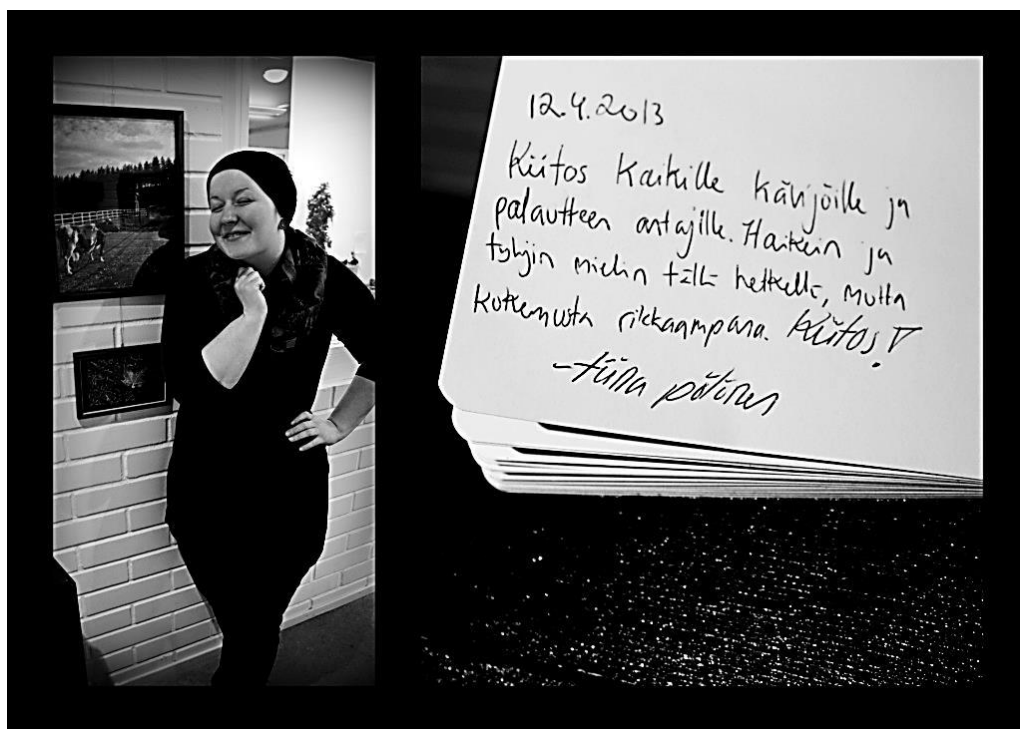 12.4.2013
Kiitos Kaikille kävijöille ja
palautteen antajille. Haikein ja
tyhjin mielin tällä hetkellä, mutta
kokemusta rikkaampana. Kiitos!
-tiina